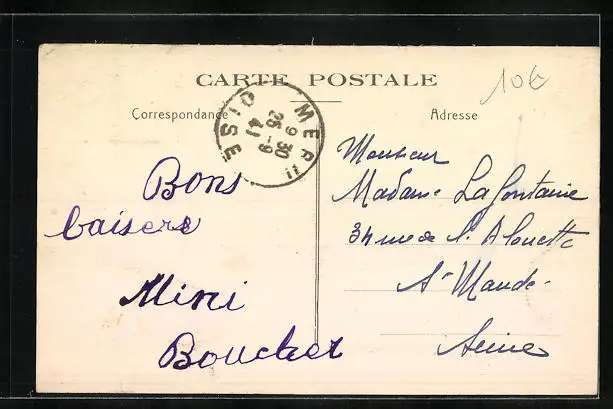 CARTE POSTALE
10€
Correspondance
Adresse
MERU
9 30
25 - 9
41
OISE
Bons
baisers
Mimi
Bouchet
Monsieur
Madame Lafontaine
34 rue de l'Alouette
St Mandé
Seine